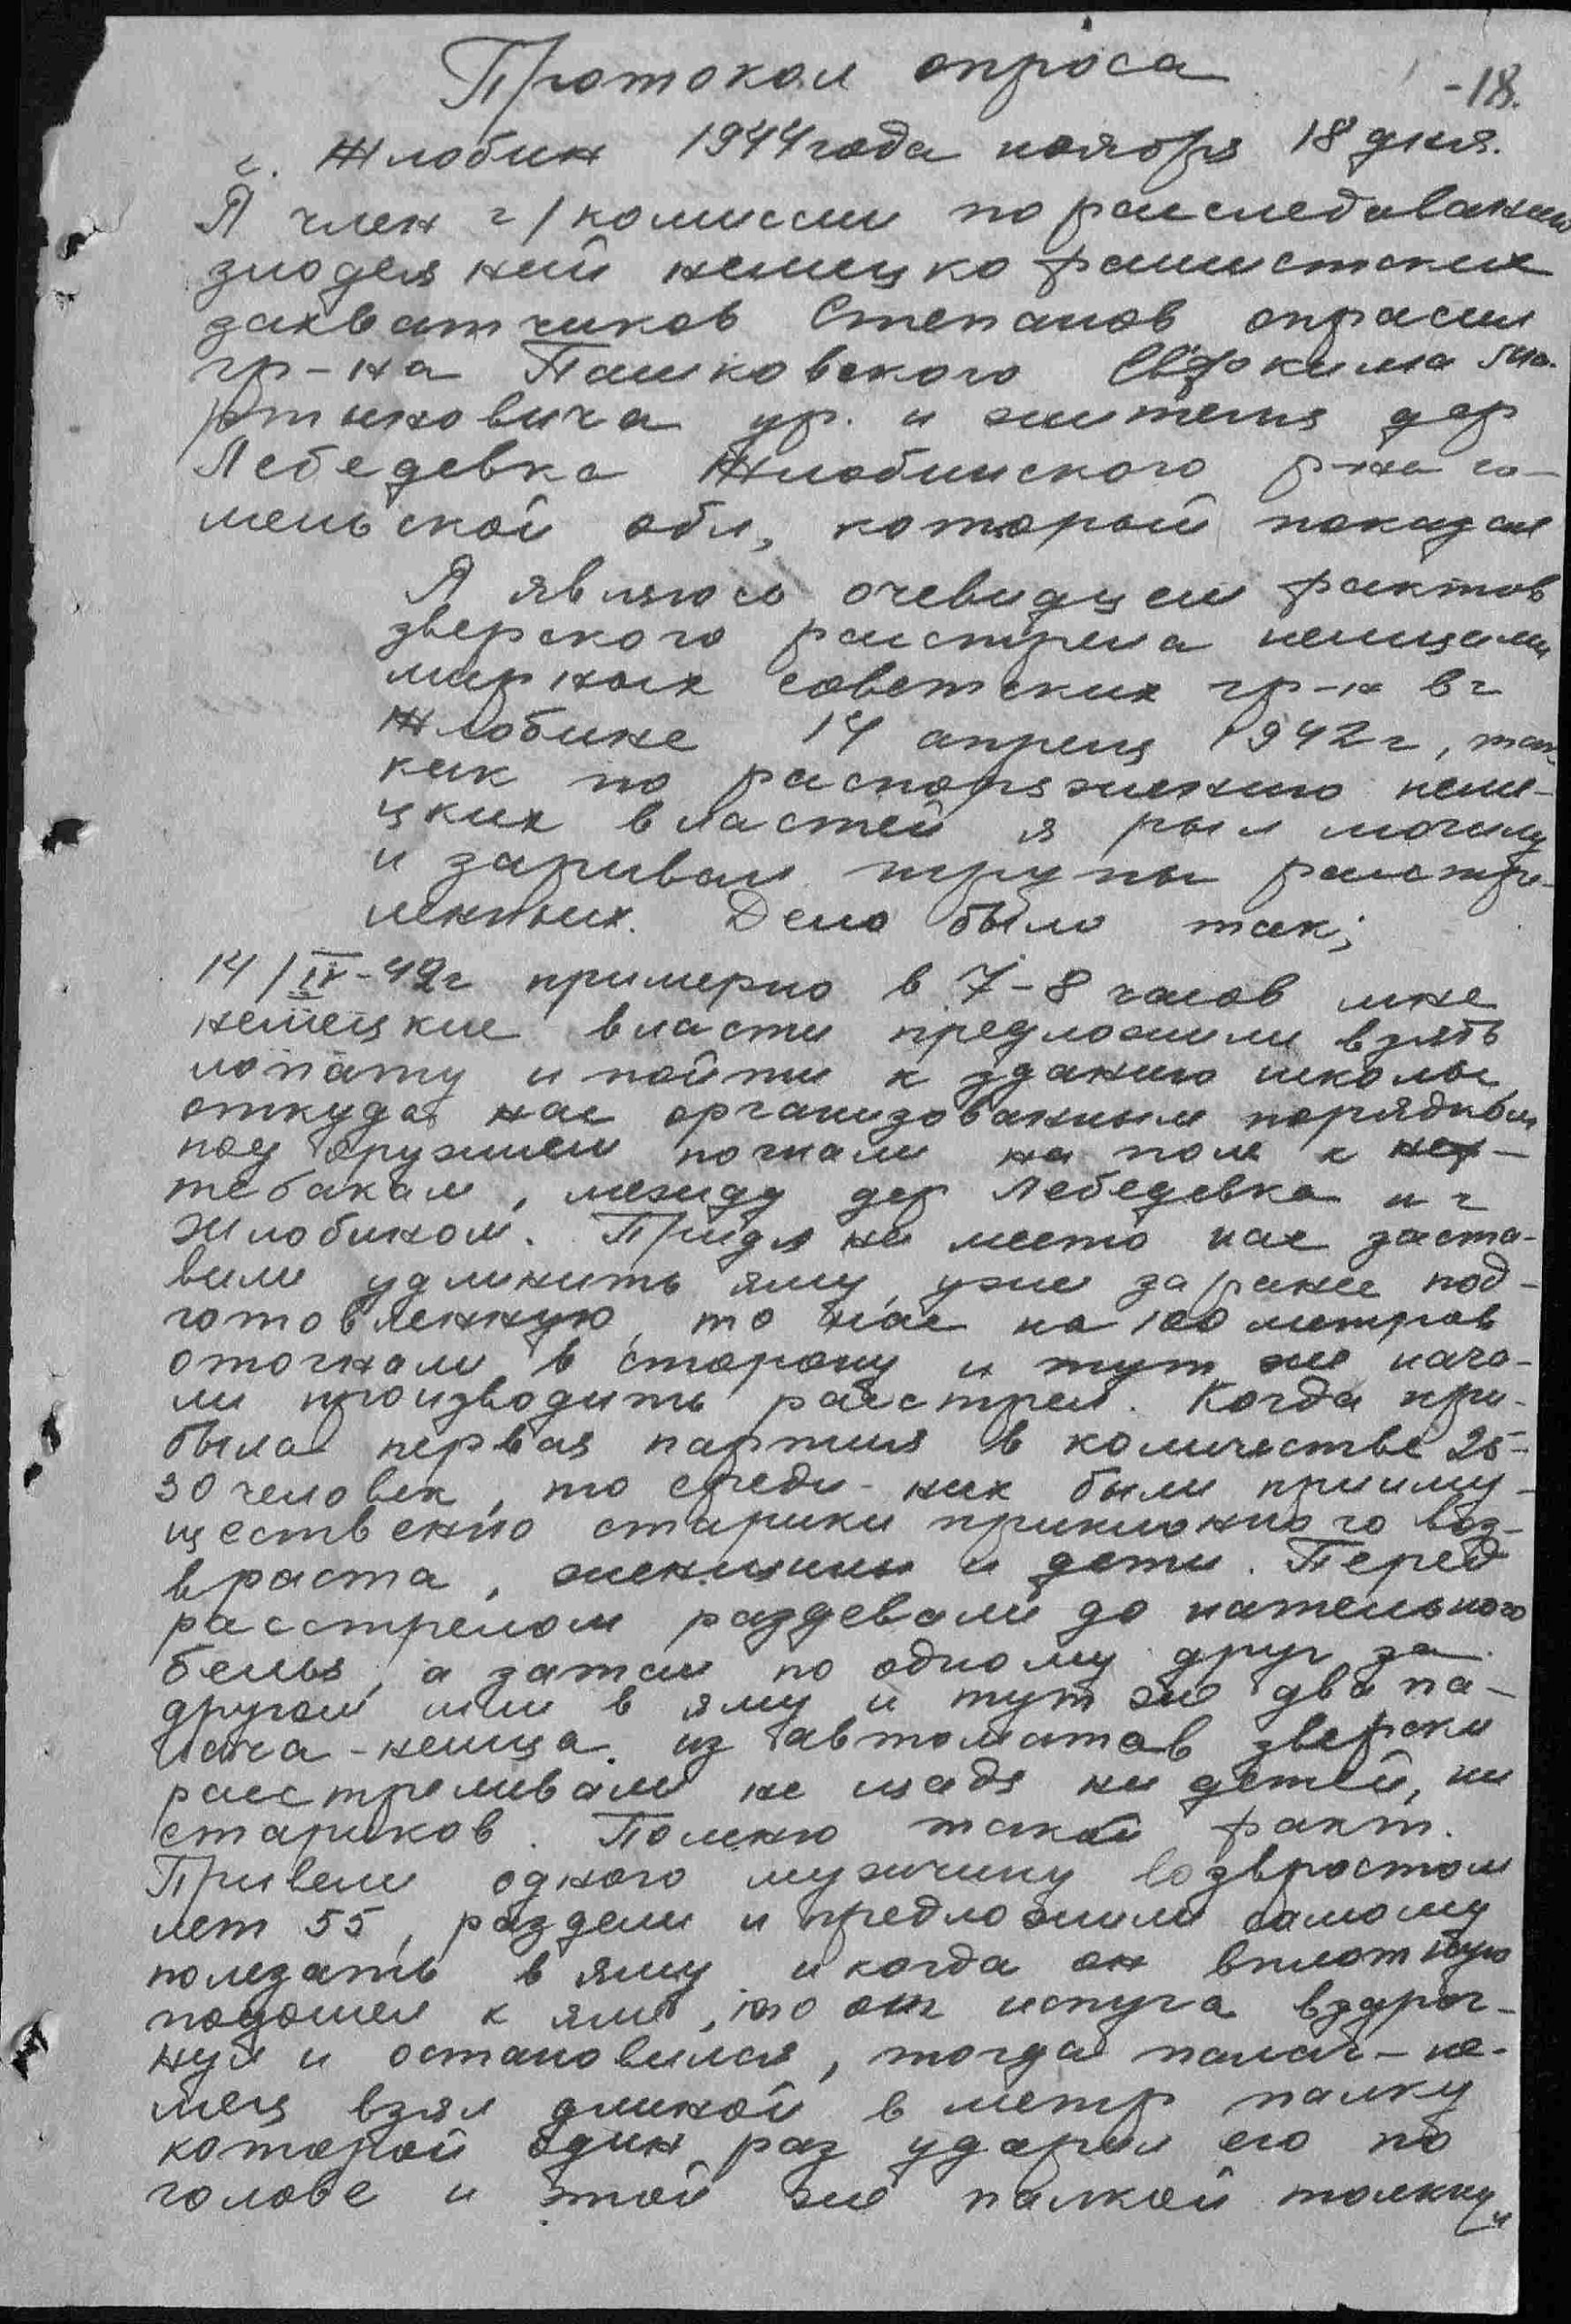 Протокол опроса
-18.
г. Жлобин 1944 года ноября 18 дня.
Я член г/комиссии по расследованию
злодеяний немецко фашистских
захватчиков Степанов опросил
гр-на Пашковского Евфкима Ма-
ртыновича ур. и жителя дер
Лебедевка Жлобинского р-на го-
мельской обл, который показал
Я являюсь очевидцем фактов
зверского расстрела немцами
мирных советских гр-н в г
Жлобине 14 апреля 1942 г, так
как по распоряжению неме-
цких властей я рыл могилу
и зарывал трупы расстре-
лянных. Дело было так;
14/IV-42г примерно в 7-8 часов мне
немецкие власти предложили взять
лопату и пойти к зданию школы
откуда нас организованным порядком
под оружием погнали на поле к
тебакам, между дер Лебедевка и г
Жлобином. Придя на место нас заста-
вили удлинить яму, уже заранее под-
готовленную, то нас на 100 метров
отогнали в сторону и тут же нача-
ли производить расстрел. Когда при-
была первая партия в количестве 25-
30 человек, то среди них были прииму-
щественно старики приклонного воз-
враста, женщины и дети. Перед
расстрелом раздевали до нательного
белья, а затем по одному друг за
другом шли в яму и тут же два па-
лача-немца из автоматов зверски
расстреливали не щадя ни детей, ни
стариков. Помню такой факт.
Привели одного мужчину возвростом
лет 55, раздели и предложили самому
полезать в яму и когда он вплотную
подошел к яме, то от испуга вздрог-
нул и остановился, тогда палач-не-
мец взял длиной в метр палку
которой один раз ударил его по
голове и этой же палкой толкнул